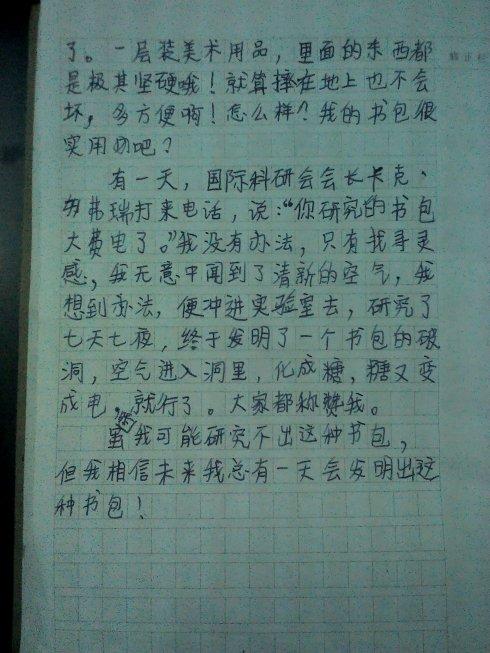 了。一层装美术用品，里面的东西都
是极其坚硬哦！就算摔在地上也不会
坏，多方便啊！怎么样？我的书包很
实用吧？
有一天，国际科研会会长卡克·
弗瑞打来电话，说：“你研究的书包
太费电了。”我没有办法，只有找寻灵
感，我无意中闻到了清新的空气，我
想到办法，便冲进实验室去，研究了
七天七夜，终于发明了一个书包的破
洞，空气进入洞里，化成糖，糖又变
成电，就行了。大家都称赞我。
虽然我可能研究不出这种书包，
但我相信未来我总有一天会发明出这
种书包！